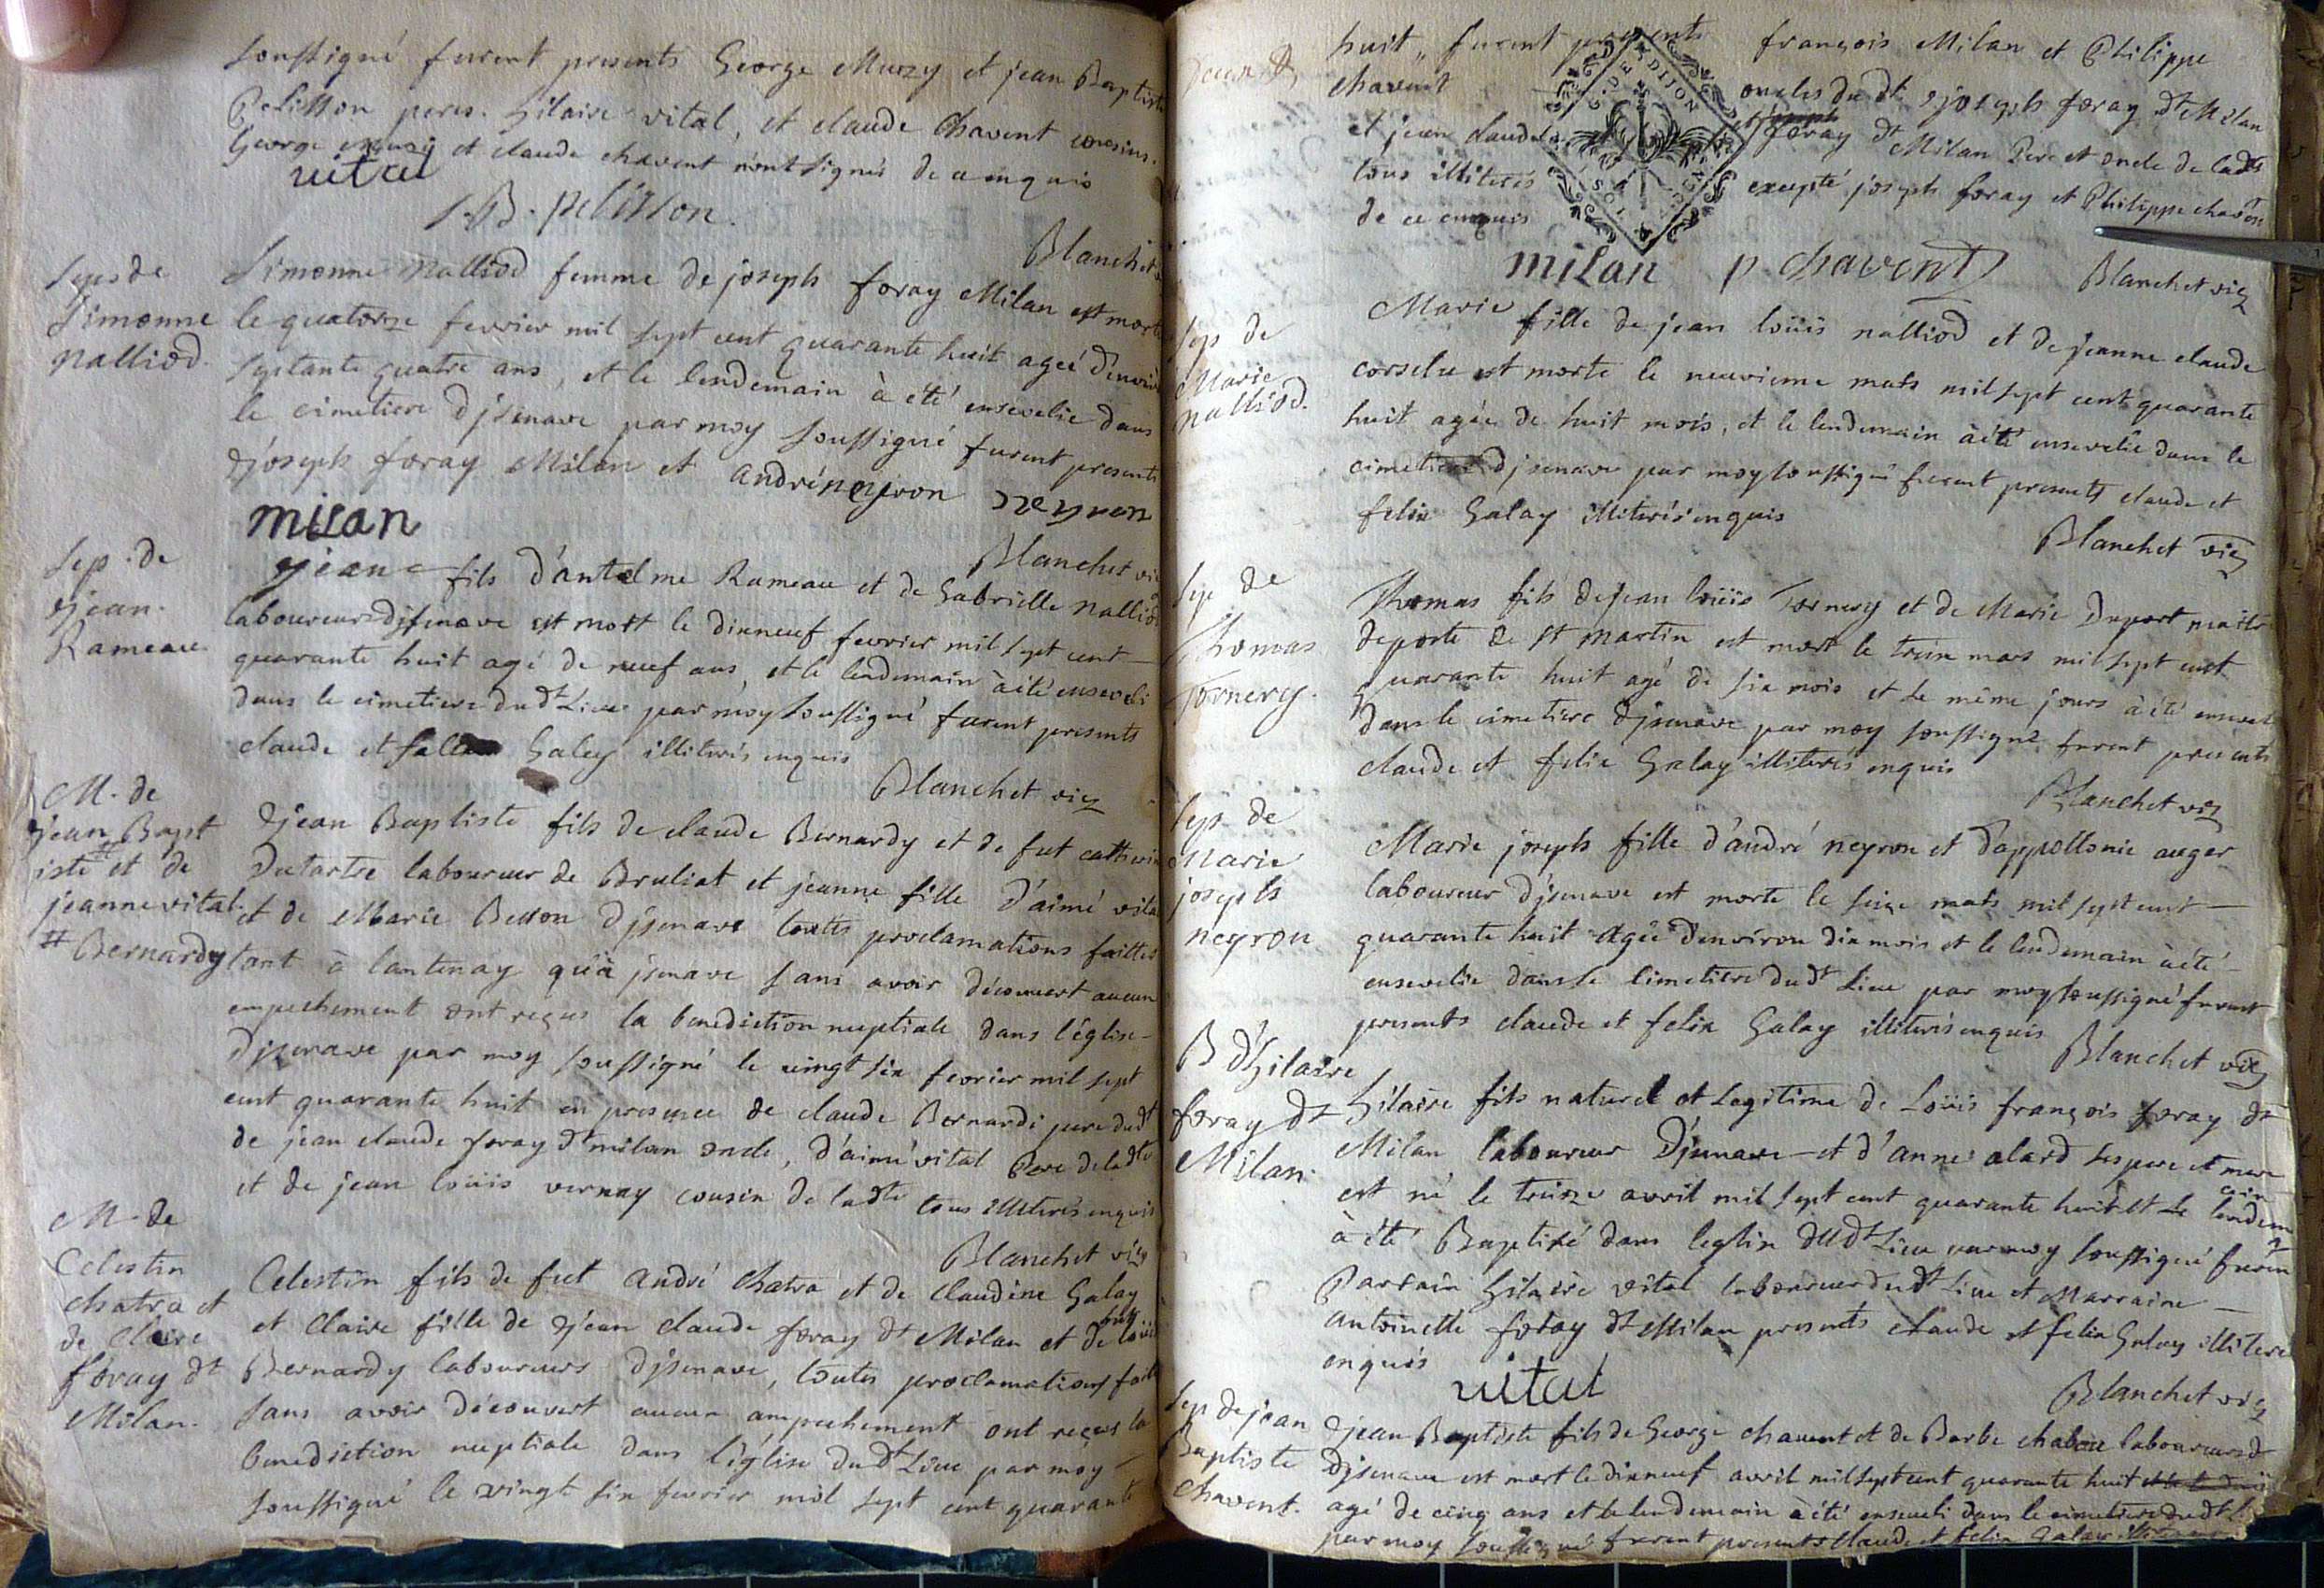 soussigné furent presents George Murzy et jean Baptiste
Pelisson peres. hilaire vital, et claude Chavent cousins.
George murzy et claude chavent n'ont signés de ce enquis
vital
J.B. pelisson.
Blanchet
Sep de
Simonne
nalliod.
Simonne nalliod femme de joseph foray Milan est morte
le quatorze fevrier mil sept cent quarante huit ageé d'environ
septante quatre ans, et le lendemain à été ensevelie dans
le cimetiere djsenave par moy soussigné furent presents
djoseph foray Milan et andré neyron neyron
milan
Blanchet vic
Sep. de
jean.
Rameau.
jean fils d'antelme Rameau et de Gabrielle nalliod
laboureurs djsenave est mort le dixneuf fevrier mil sept cent
quarante huit agé de neuf ans, et le lendemain à été enseveli
dans le cimetiere dudt Lieu par moy soussigné furent presents
claude et Galay illiterés enquis
Blanchet vic
M. de
jean Bapt
iste # et de
jeanne vital.
# Bernardy
jean Baptiste fils de claude Bernardy et de fut catherine
Dutartre laboureur de Bruliat et jeanne fille d'aimé vital
et de Marie Besson djsenave touttes proclamations faittes
tant à lantenay qu'à jsenave sans avoir découvert aucun
empechement ont reçus la benediction nuptiale dans l'église
djsenave par moy soussigné le vingt six fevrier mil sept
cent quarante huit en presence de claude Bernardi pere dudt
de jean claude foray dt milan oncle, d'aimé vital Pere de ladte
et de jean loüis vernay cousin de ladte tous illiterés enquis
Blanchet vic
M. de
Celestin
chatra et
de Claire
foray dt
Milan.
Celestin fils de fut André Chatra et de claudine Galay
et Claire fille de jean claude foray dt Milan et de loüise
Bernardy laboureurs djsenave, toutes proclamations faites
sans avoir découvert aucun ampechement ont reçus la
benediction nuptiale dans l'église dudt Lieu par moy
soussigné le vingt six fevrier mil sept cent quarante
huit, furent presents françois Milan et Philippe
chavent oncles du dt joseph foray dt Milan
et jean claude foray dt Milan Pere et oncle de ladte
tous illiterés excepté joseph foray et Philippe chavent
de ce enquis
G. DE DIJON
milan p chavent
Blanchet vic
Sep de
Marie
nalliod.
Marie fille de jean loüis nalliod et de jeanne claude
corselu est morte le neuvieme mars mil sept cent quarante
huit agée de huit mois, et le lendemain à été ensevelie dans le
cimetiere djsenave par moy soussigné furent presents claude et
felix Galay illiterés enquis
Blanchet vic
Sep de
Thomas
Tornery.
Thomas fils de jean loüis Tornery et de Marie Duport maitre
de poste de st martin est mort le treize mars mil sept cent
quarante huit agé de six mois et le même jours à été enseveli
dans le cimetiere djsenave par moy soussigné furent presents
claude et felix Galay illiterés enquis
Blanchet vic
Sep de
Marie
joseph
neyron
Marie joseph fille d'andré neyron et d'appollonie auger
laboureur d'jsenave est morte le seize mars mil sept cent
quarante huit agée d'environ dix mois et le lendemain à été
ensevelie dans le cimetiere dudt Lieu par moy soussigné furent
presents claude et felix Galay illiterés enquis
Blanchet vic
B d'hilaire
foray dt
Milan.
hilaire fils naturel et Legitime de Loüis françois foray dt
Milan laboureur D'jsenave et d'anne alard ses pere et mere
est né le treize avril mil sept cent quarante huit et Le lendemain
à été Baptisé dans leglise dudt Lieu par moy soussigné furent
Parrain hilaire vital laboureur dudt Lieu et Marraine
antoinette foray dt Milan presents claude et felix Galay illiteré
enquis
vital
Blanchet vic
Sep de jean
Baptiste
Chavent.
jean Baptiste fils de George chavent et de Barbe laboureurs dt
Djsenave est mort le dixneuf avril mil sept cent quarante huit
agé de cinq ans et le lendemain à été enseveli dans le cimetiere dudt L
par moy soussigné furent presents claude et felix Galay